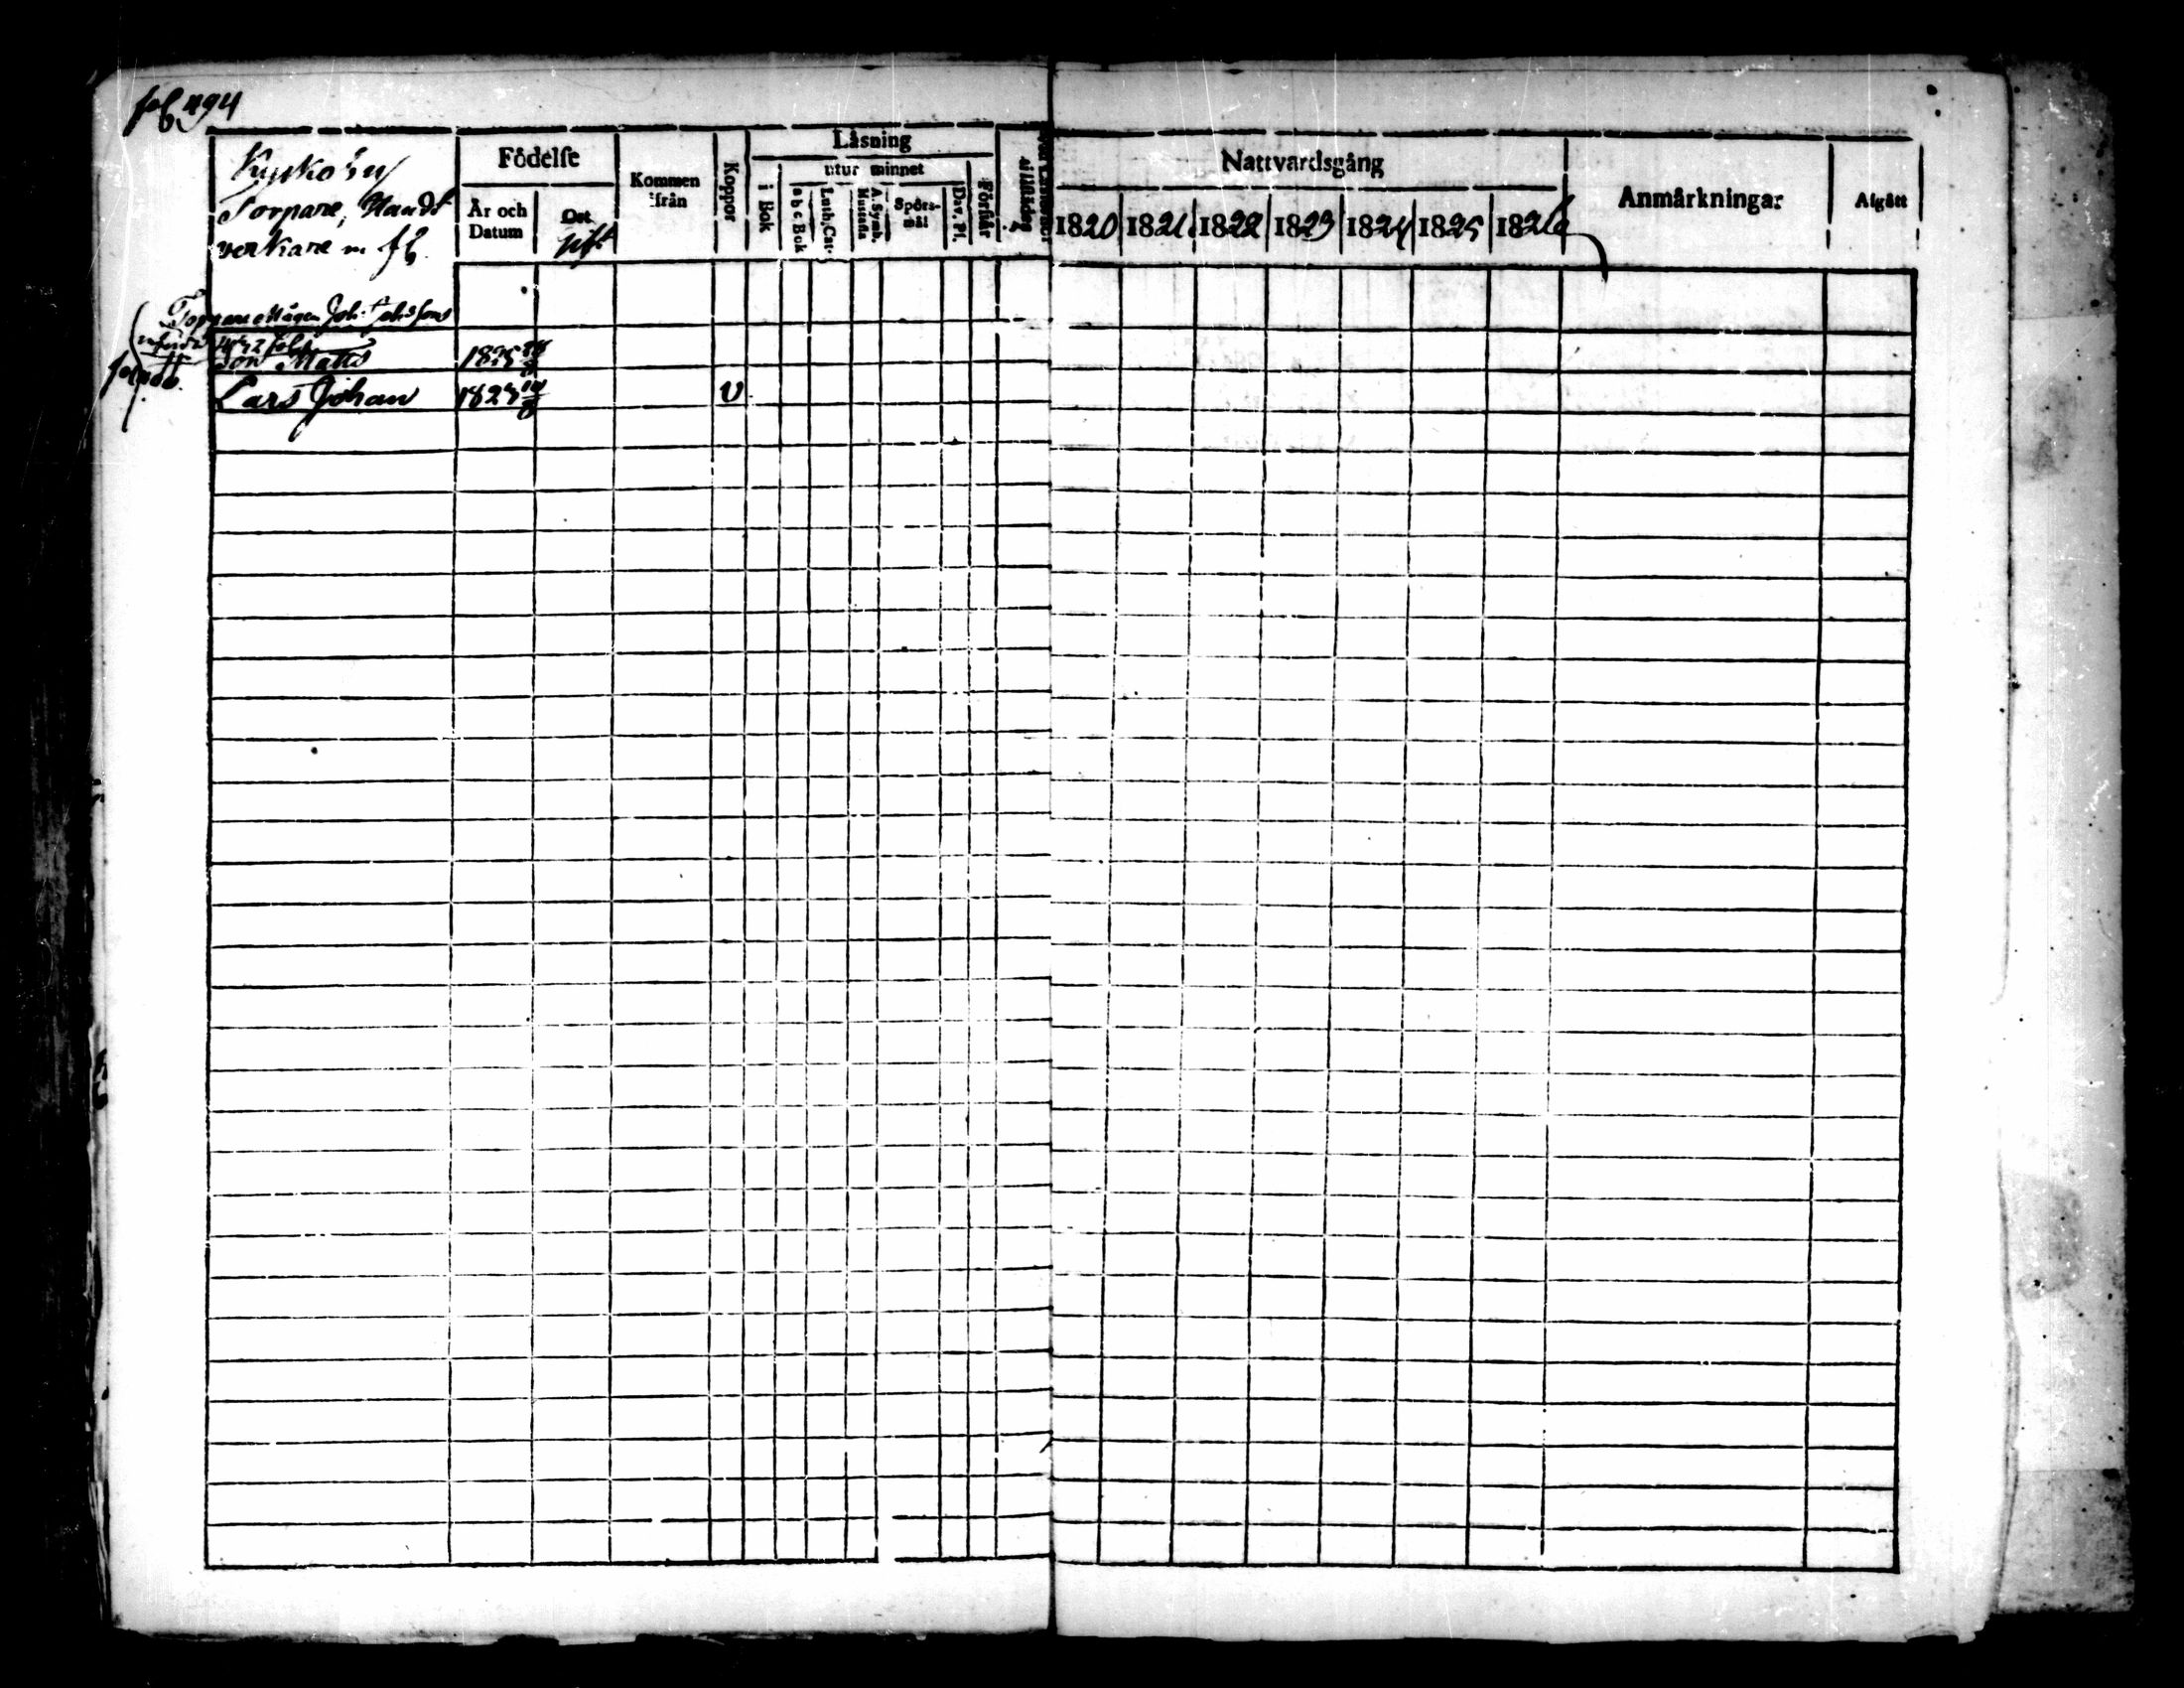 fol 494
Kyrkoby
Torpare, Handt
verkare m fl.
Födelse
År och Datum
Ort
Kommen ifrån
Koppor
Läsning
i Bok
utur minnet
a b c Bok
Luth. Cat.
A. Symb.
Hustafla
Spörs-mål
Dav. Ps.
Förstår
Nattvardsgång
1820 1821 1822 1823 1824 1825 1826
Anmärkningar
Afgått
Torpare Mågen Joh. Johsons
Son Matts 1825
Lars Johan 1823 v